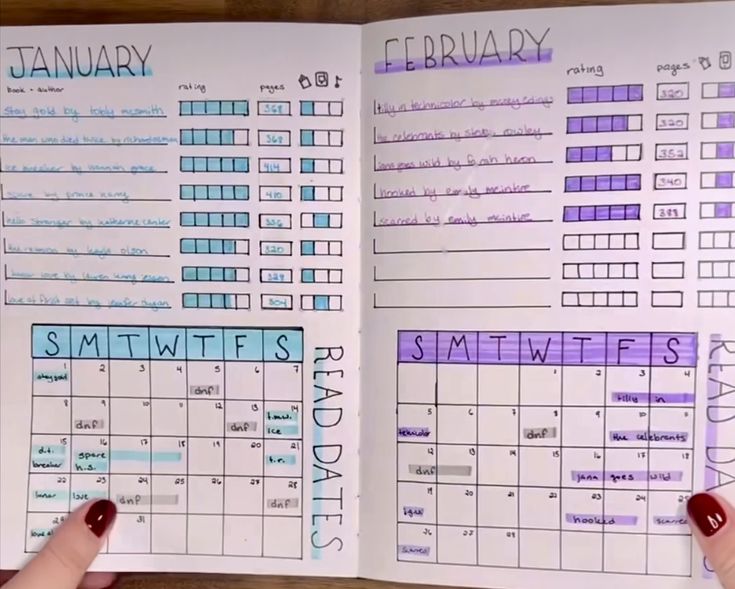 JANUARY
book + author
rating
pages
stay gold by tobly mcsmith
368
the man who died twice by richard osman
368
ice breaker by hannah grace
414
spare by prince harry
410
hello stranger by katherine center
336
the reunion by kayla olson
320
lunar love by lauren kung jessen
329
love at first set by jennifer dugan
304
S M T W T F S
1 2 3 4 5 6 7
stay gold
dnf
8 9 10 11 12 13 14
dnf
dnf
t.m.w.
ice
15 16 17 18 19 20 21
d.t.
breaker
spare
h.s.
t.r.
22 23 24 25 26 27 28
lunar love
dnf
dnf
31
READ DATES
FEBRUARY
rating
pages
tilly in technicolor by mazey eddings
320
the celebrants by steven rowley
320
jana goes wild by farah heron
352
hooked by emily mcintire
340
scarred by emily mcintire
388
S M T W T F S
1 2 3 4
tilly in
5 6 7 8 9 10 11
technicolor
dnf
the celebrants
12 13 14 15 16 17 18
dnf
jana goes wild
19 20 21 22 23 24 25
jgw
hooked
scarred
26 27 28
scarred
READ DA